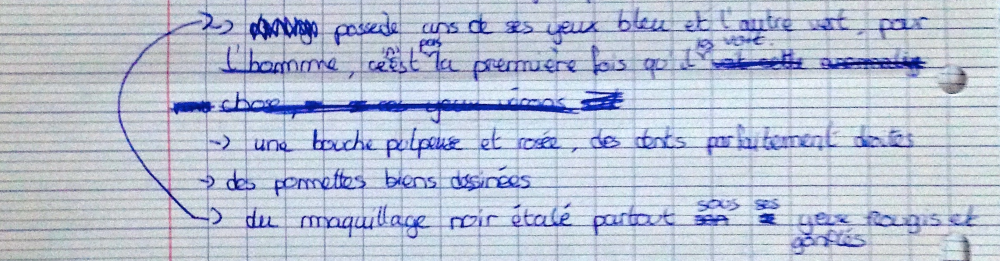 -> possede uns de ses yeux bleu et l'autre vert, pour
l'homme, ce n'est pas la première fois qu'il la voit.
chose, yeux
-> une bouche pulpeuse et rosée, des dents parfaitement droites
-> des pommettes biens dssinées
-> du maquillage noir étalé partout sous ses yeux rougis et
gonflés